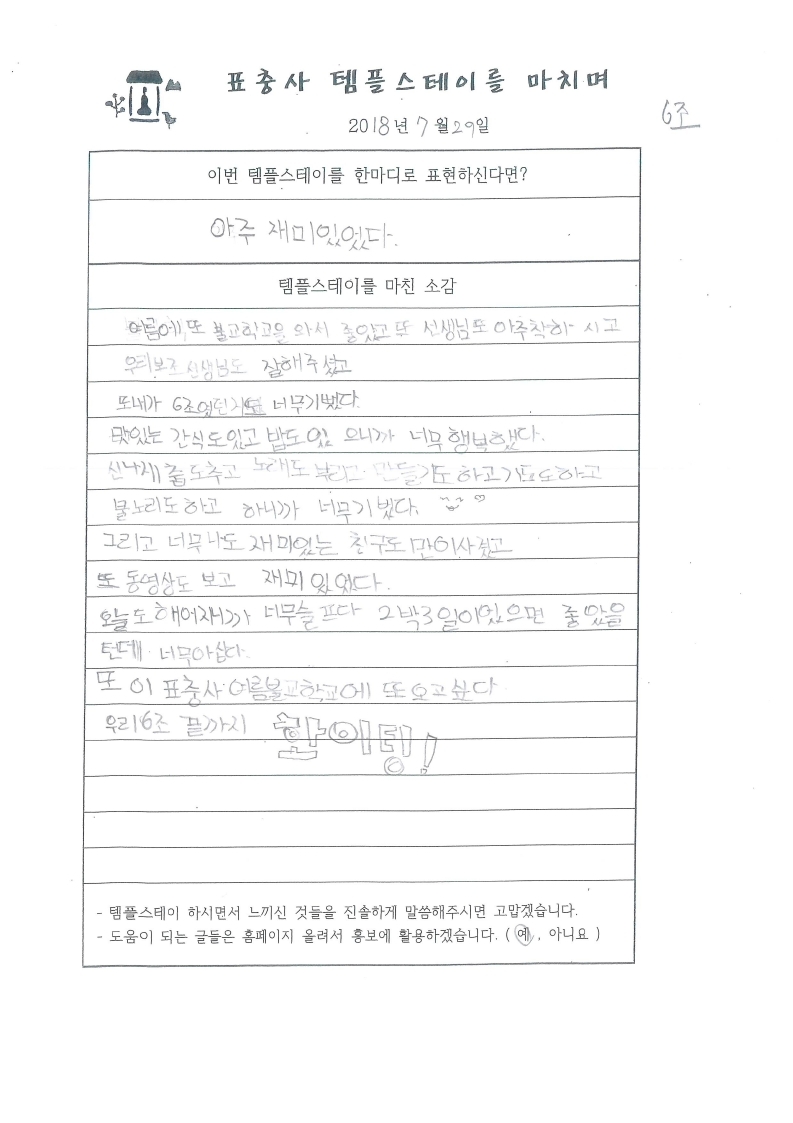 표충사 템플스테이를 마치며
2018년 7월 29일
6조
이번 템플스테이를 한마디로 표현하신다면?
아주 재미있었다.
템플스테이를 마친 소감
여름에 또 불교학교을 와서 좋았고 또 선생님도 아주착하 시고
우리보조선생님도 잘해주셨고
또내가 6조였던거도 너무기뻤다.
맛있는 간식도있고 밥도있 으니까 너무 행복했다.
신나게 춤도추고 노래도 부르고 만들기도 하고 기도도하고
물노리도하고 하니까 너무기뻤다.
그리고 너무나도 재미있는 친구도 만이사겼고
또 동영상도 보고 재미 있었다.
오늘도 해어재니까 너무슬프다 2박3일이였으면 좋았을
턴데 너무아쉽다.
또 이 표충사 여름불교학교에 또 오고 싶다
우리6조 끝까지 화이팅!
- 템플스테이 하시면서 느끼신 것들을 진솔하게 말씀해주시면 고맙겠습니다.
- 도움이 되는 글들은 홈페이지 올려서 홍보에 활용하겠습니다. ( 예 , 아니요 )